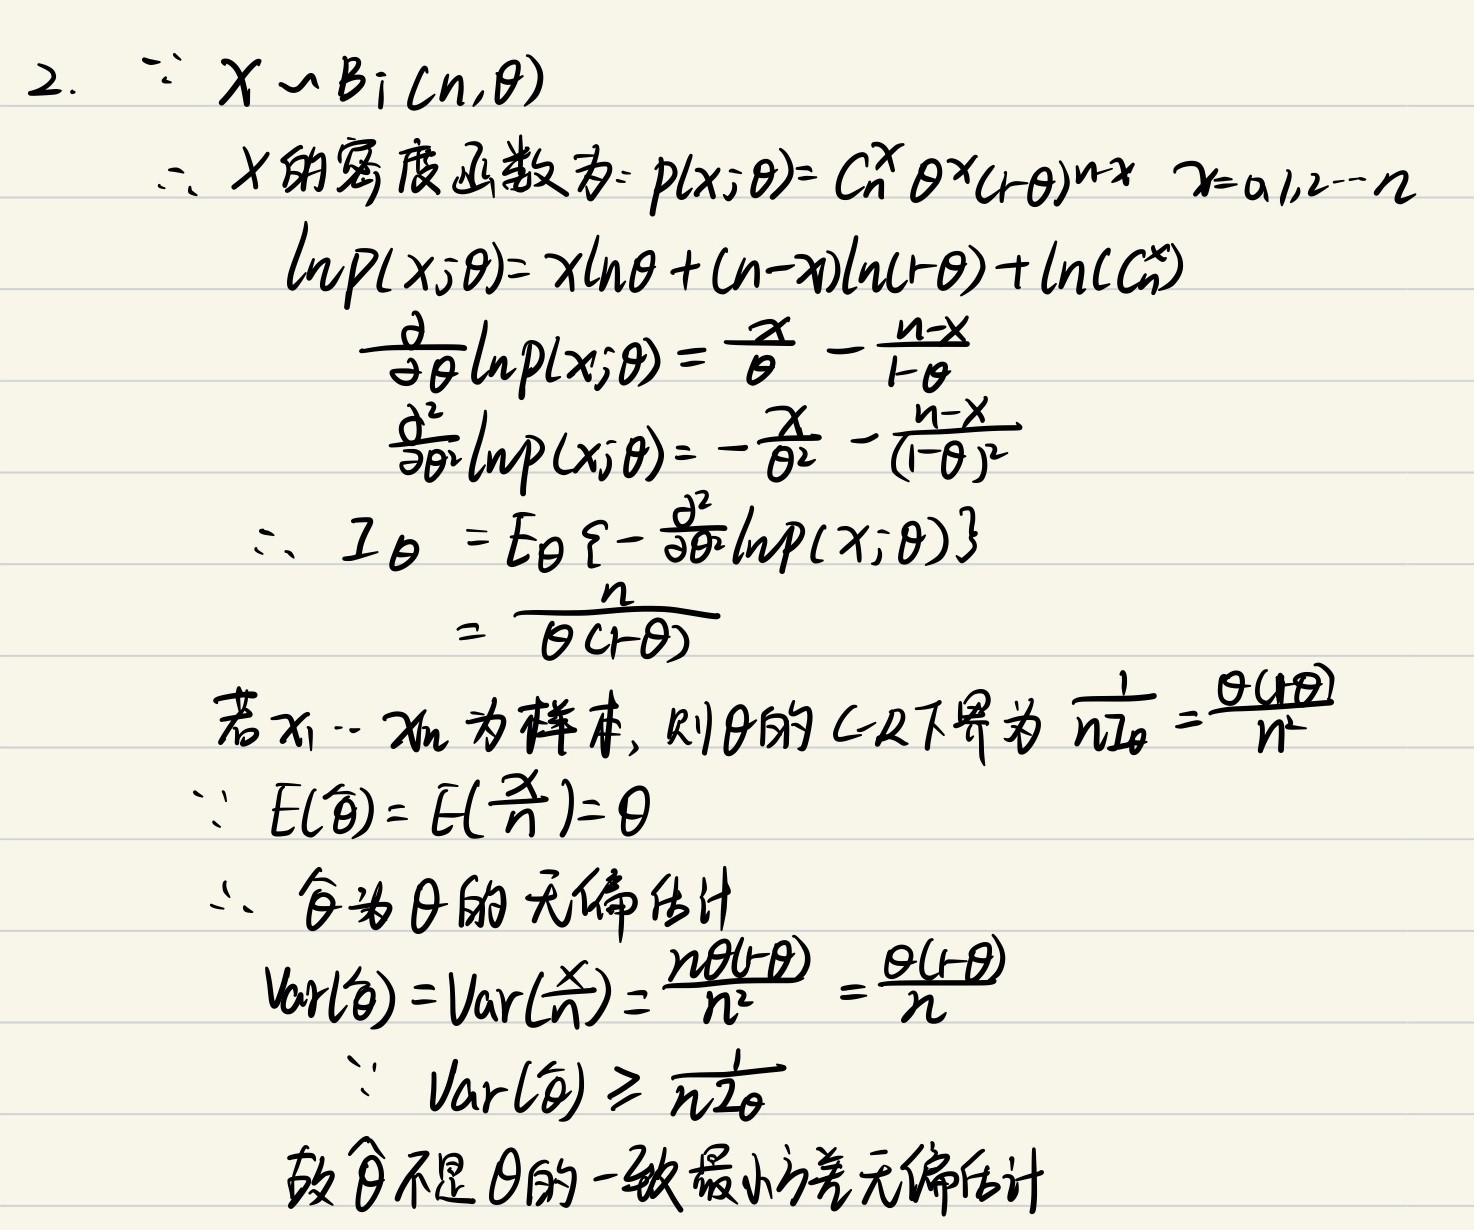 2. ∵ X ~ Bi(n,θ)
∴ X的密度函数为: p(x;θ)= C_n^x θ^x(1-θ)^{n-x} x=0,1,2...n
lnp(x;θ)= xlnθ + (n-x)ln(1-θ) + ln(C_n^x)
∂/∂θ lnp(x;θ) = x/θ - (n-x)/(1-θ)
∂²/∂θ² lnp(x;θ) = - x/θ² - (n-x)/(1-θ)²
∴ I_θ = E_θ{- ∂²/∂θ² lnp(x;θ)}
= n/(θ(1-θ))
若x₁...xₙ为样本, 则θ的C-R下界为 1/(nI_θ) = θ(1-θ)/n²
∵ E(θ̂) = E(x/n) = θ
∴ θ̂为θ的无偏估计
Var(θ̂) = Var(x/n) = nθ(1-θ)/n² = θ(1-θ)/n
∵ Var(θ̂) ≥ 1/(nI_θ)
故θ̂不是θ的一致最小方差无偏估计